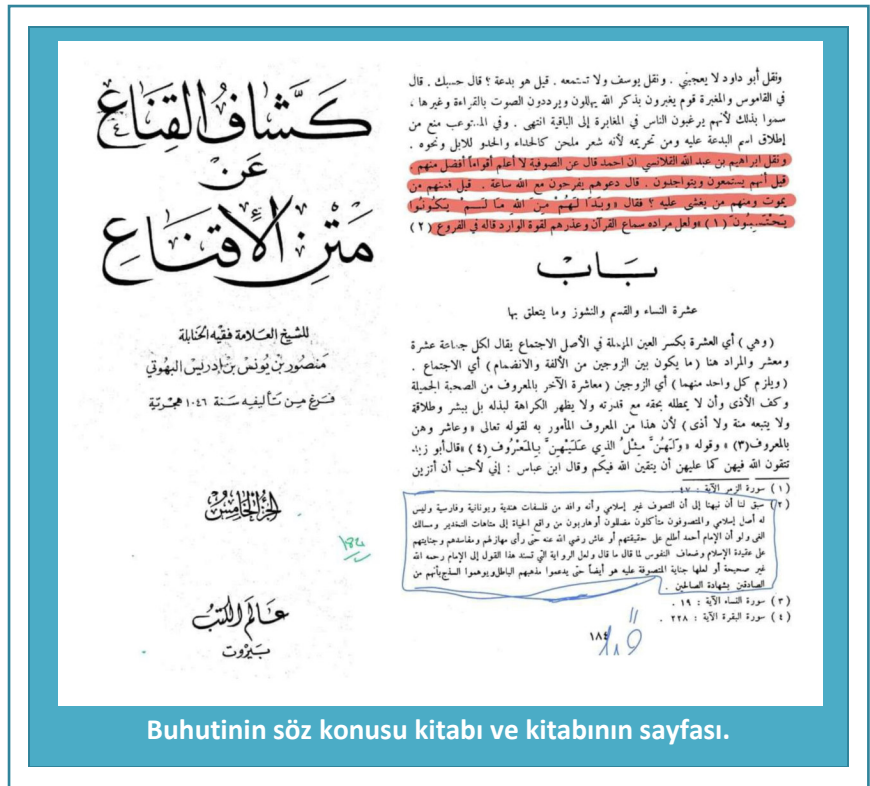 كَشَّافُ القِنَاع
عَن
مَتنِ الإِقنَاع
للشيخ العلامة فقيه الحنابلة
منصور بن يونس بن إدريس البهوتي
فرغ من تأليفه سنة ١٠٤٦ هجرية
الجزء الخامس
١٨٤
عالم الكتب
بيروت
ونقل أبو داود لا يعجبني . ونقل يوسف ولا تستمعه . قيل هو بدعة ؟ قال حسبك . قال
في القاموس والمغبرة قوم يغبرون بذكر الله يهللون ويرددون الصوت بالقراءة وغيرها ،
سموا بذلك لأنهم يرغبون الناس في المغابرة إلى الباقية انتهى . وفي المستوعب منع من
إطلاق اسم البدعة عليه ومن تحريمه لأنه شعر ملحن كالحداء والحدو للابل ونحوه .
ونقل ابراهيم بن عبد الله القلانسي ان احمد قال عن الصوفية لا أعلم أقواماً أفضل منهم ،
قيل أنهم يستمعون ويتواجدون . قال دعوهم يفرحون مع الله ساعة . قيل فمنهم من
يموت ومنهم من يغشى عليه ؟ فقال « وَبَدَا لَهُمْ مِنَ اللهِ مَا لَمْ يَكُونُوا
يَحْتَسِبُونَ (١) » ولعل مراده سماع القرآن وعذرهم لقوة الوارد قاله في الفروع (٢)
بَابْ
عشرة النساء والقسم والنشوز وما يتعلق بها
( وهي ) أي العشرة بكسر العين المهملة في الأصل الاجتماع يقال لكل جماعة عشرة
ومعشر والمراد هنا ( ما يكون بين الزوجين من الألفة والانضمام ) أي الاجتماع .
( ويلزم كل واحد منهما ) أي الزوجين ( معاشرة الآخر بالمعروف من الصحبة الجميلة
وكف الأذى وأن لا يمطله بحقه مع قدرته ولا يظهر الكراهة لبذله بل ببشر وطلاقة
ولا يتبعه منة ولا أذى ) لأن هذا من المعروف المأمور به لقوله تعالى « وعاشر وهن
بالمعروف(٣) » وقوله « وَلَهُنَّ مِثْلُ الذي عَلَيْهِنَّ بِالمَعْرُوفِ (٤) » قال أبو زيد
تتقون الله فيهن كما عليهن أن يتقين الله فيكم وقال ابن عباس : إني لأحب أن أتزين
( ١ ) سورة الزمر الآية : ٤٧ .
( ٢ ) سبق لنا أن نبهنا إلى أن التصوف غير إسلامي وأنه وافد من فلسفات هندية ويونانية وفارسية وليس
له أصل إسلامي والمتصوفون متأكلون مضللون أوهاربون من واقع الحياة إلى متاهات التخدير ومسالك
الغي ولو أن الإمام أحمد أطلع على حقيقتهم أو عاش رضي الله عنه حتى رأى مهازلهم ومفاسدهم وجنايتهم
على عقيدة الإسلام وضعاف النفوس لما قال ما قال ولعل الرواية التي تسند هذا القول إلى الإمام رحمه الله
غير صحيحة أو لعلها جناية المتصوفة عليه هو أيضاً حتى يدعموا مذهبهم الباطل ويوهموا السذج بأنهم من
الصادقين بشهادة الصالحين .
( ٣ ) سورة النساء الآية : ١٩ .
( ٤ ) سورة البقرة الآية : ٢٢٨ .
١٨٤
Buhutinin söz konusu kitabı ve kitabının sayfası.